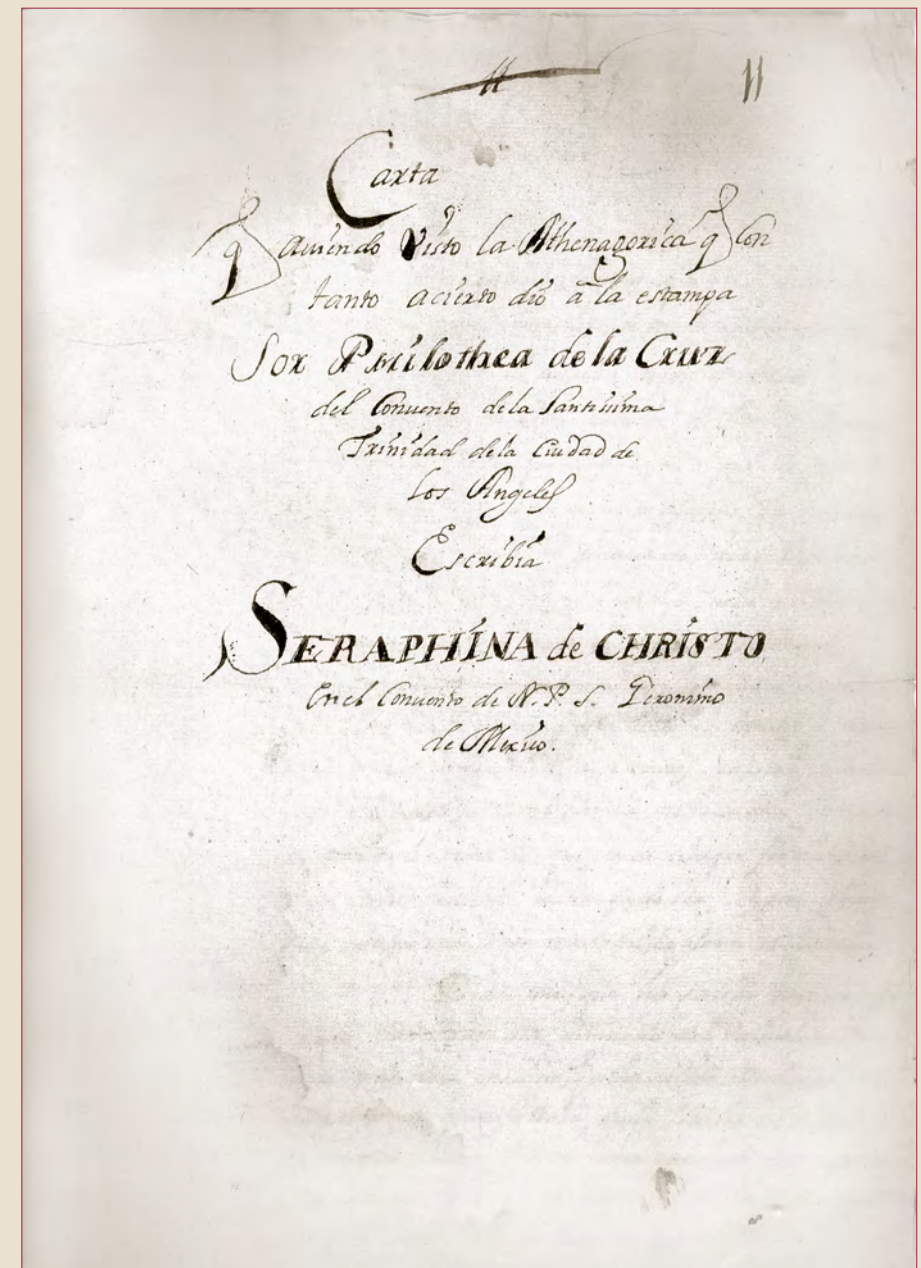 11 11
Carta
q aviendo Visto la Athenagorica q Con
tanto acierto dió â la estampa
Sor Philothea de la Cruz
del Convento dela Santissima
Trinidad dela Ciudad de
los Angeles
Escribia
SERAPHINA de CHRISTO
En el Convento de N. P. S. Geronimo
de Mexico.